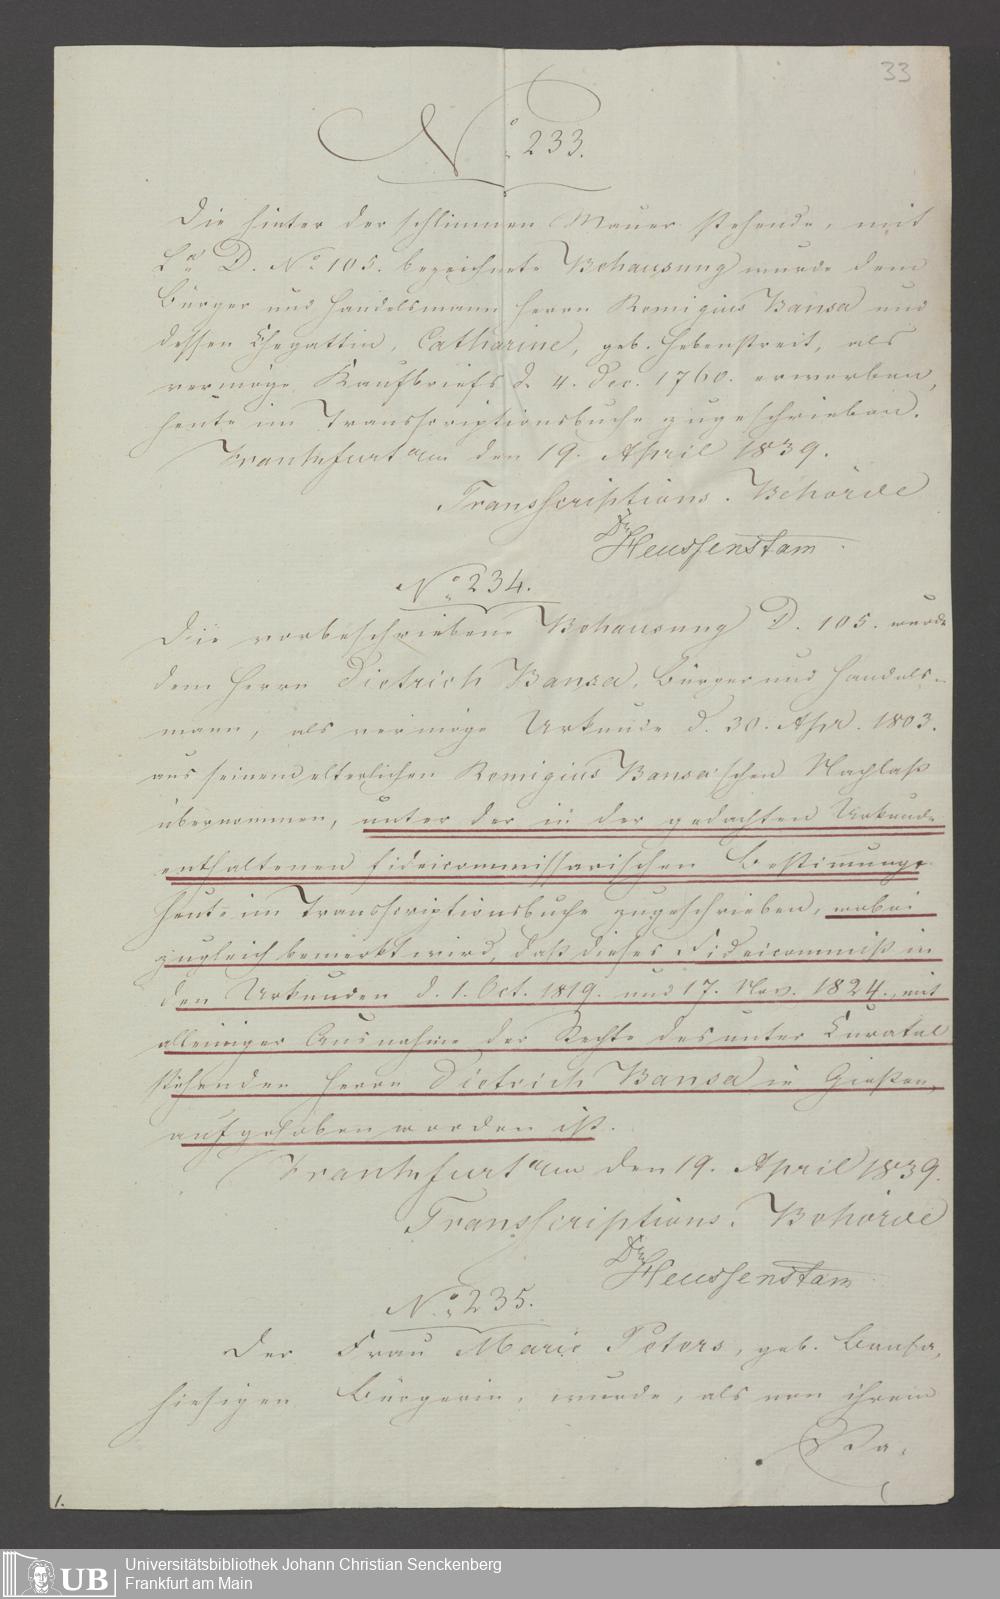 33
No 233.
Die hinter der schlimmen Mauer stehende, mit
La D. No 105. bezeichnete Behausung wurde dem
Bürger und Handelsmann Herrn Remigius Bansa und
dessen Ehegattin, Catharine, geb. Hebenstreit, als
vermöge Kaufbriefs d. 4. Dec. 1760. erworben,
heute im Transscriptionsbuche zugeschrieben.
Frankfurt am den 19. April 1839.
Transscriptions-Behörde
Dr. Heussenstam
No 234.
Die vorbeschriebene Behausung D. 105. wurde
dem Herrn Dietrich Bansa, Bürger und Handels-
mann, als vermöge Urkunde d. 30. Apr. 1803.
aus seinem elterlichen Remigius Bansa'schen Nachlaß
übernommen, unter der in der gedachten Urkunde
enthaltenen fideicommissarischen Bestimung
heute im Transscriptionsbuche zugeschrieben, wobei
zugleich bemerkt wird, daß dieses Fideicommiß in
den Urkunden d. 1. Oct. 1819. und 17. Nov. 1824., mit
alleiniger Ausnahme der Rechte des unter Curatel
stehenden Herrn Dietrich Bansa in Gießen,
aufgehoben worden ist.
Frankfurt am den 19. April 1839.
Transscriptions-Behörde
Dr. Heussenstam
No 235.
Der Frau Marie Peters, geb. Bansa,
hiesigen Bürgerin, wurde, als von ihrem
Va-
1.
UB
Universitätsbibliothek Johann Christian Senckenberg
Frankfurt am Main